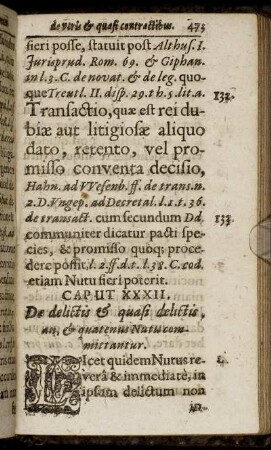 de veris & quasi contractibus. 475
fieri posse, statuit post Althus. l.
Jurisprud. Rom. 69. & Giphan.
in l. 3. C. de novat. & de leg. quo-
que Treutl. II. disp. 29. th. 5. lit. a.
Transactio, quæ est rei du- 132.
biæ aut litigiosæ aliquo
dato, retento, vel pro-
misso conventa decisio,
Hahn. ad Wesenb. ff. de trans. n.
2. D. Vngep. ad Decretal. l. 1. t. 36.
de transact. cum secundum Dd. 133.
communiter dicatur pacti spe-
cies, & promisso quoq; proce-
dere possit, l. 2. ff. d. t. l. 38. C. eod.
etiam Nutu fieri poterit.
CAPUT XXXII.
De delictis & quasi delictis,
an, & quatenus Nutu com-
mittantur.
LIcet quidem Nutus re- 1.
verâ & immediatè, in
ipsam delictum non